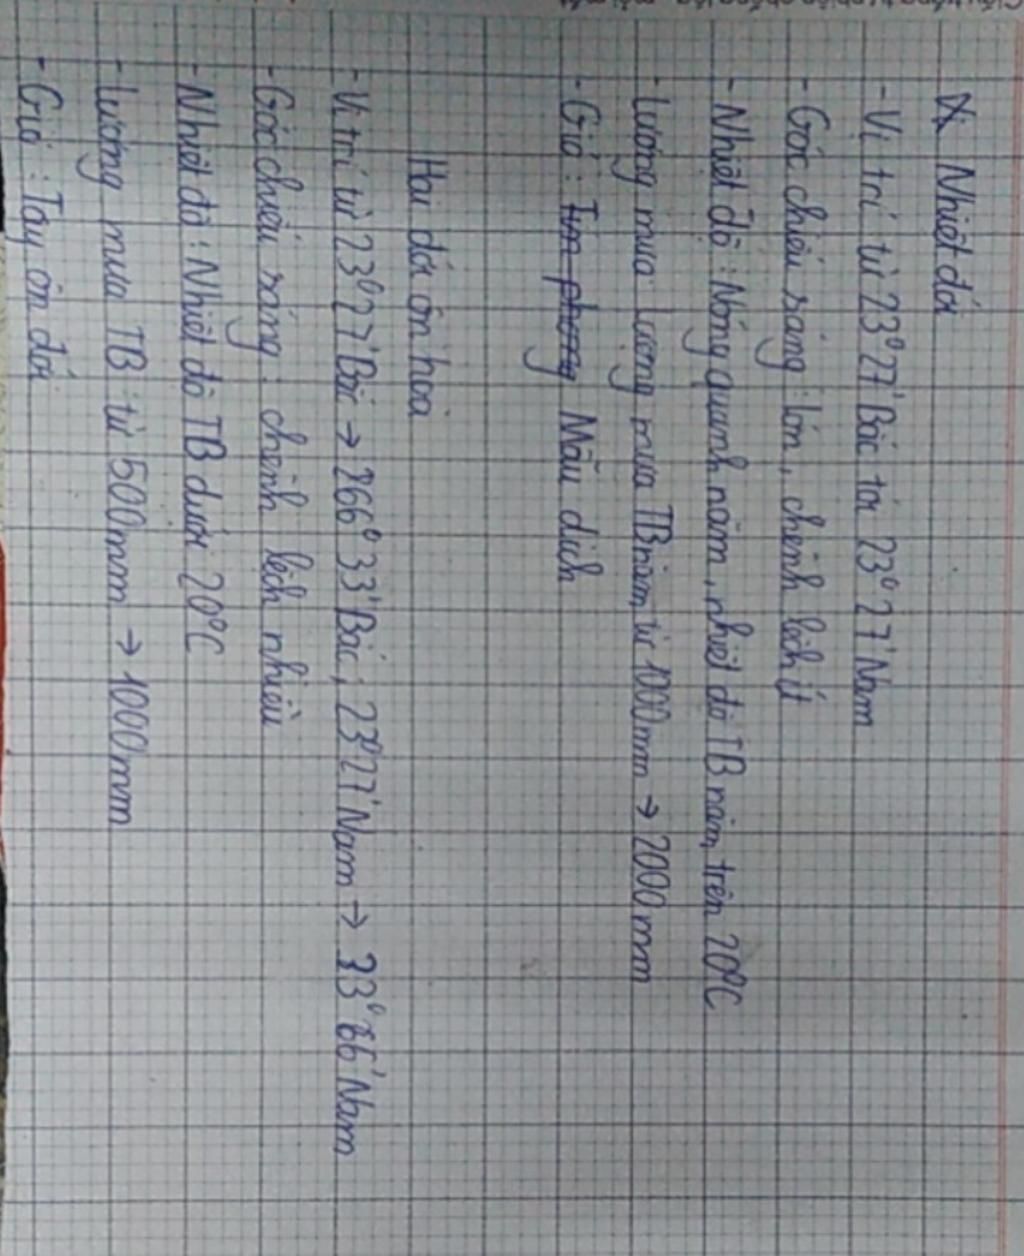 Nhiệt đới
- Vị trí từ 23°27' Bắc tới 23°27' Nam
- Góc chiếu sáng: lớn, chênh lệch ít
- Nhiệt độ: Nóng quanh năm, nhiệt độ TB năm trên 20°C
- Lượng mưa: Lượng mưa TB năm từ 1000mm → 2000mm
- Gió: Mậu dịch
Hai đới ôn hoà
- Vị trí từ 23°27' Bắc → 66°33' Bắc; 23°27' Nam → 33°66' Nam
- Góc chiếu sáng: chênh lệch nhiều
- Nhiệt độ: Nhiệt độ TB dưới 20°C
- Lượng mưa TB từ 500mm → 1000mm
- Gió: Tây ôn đới